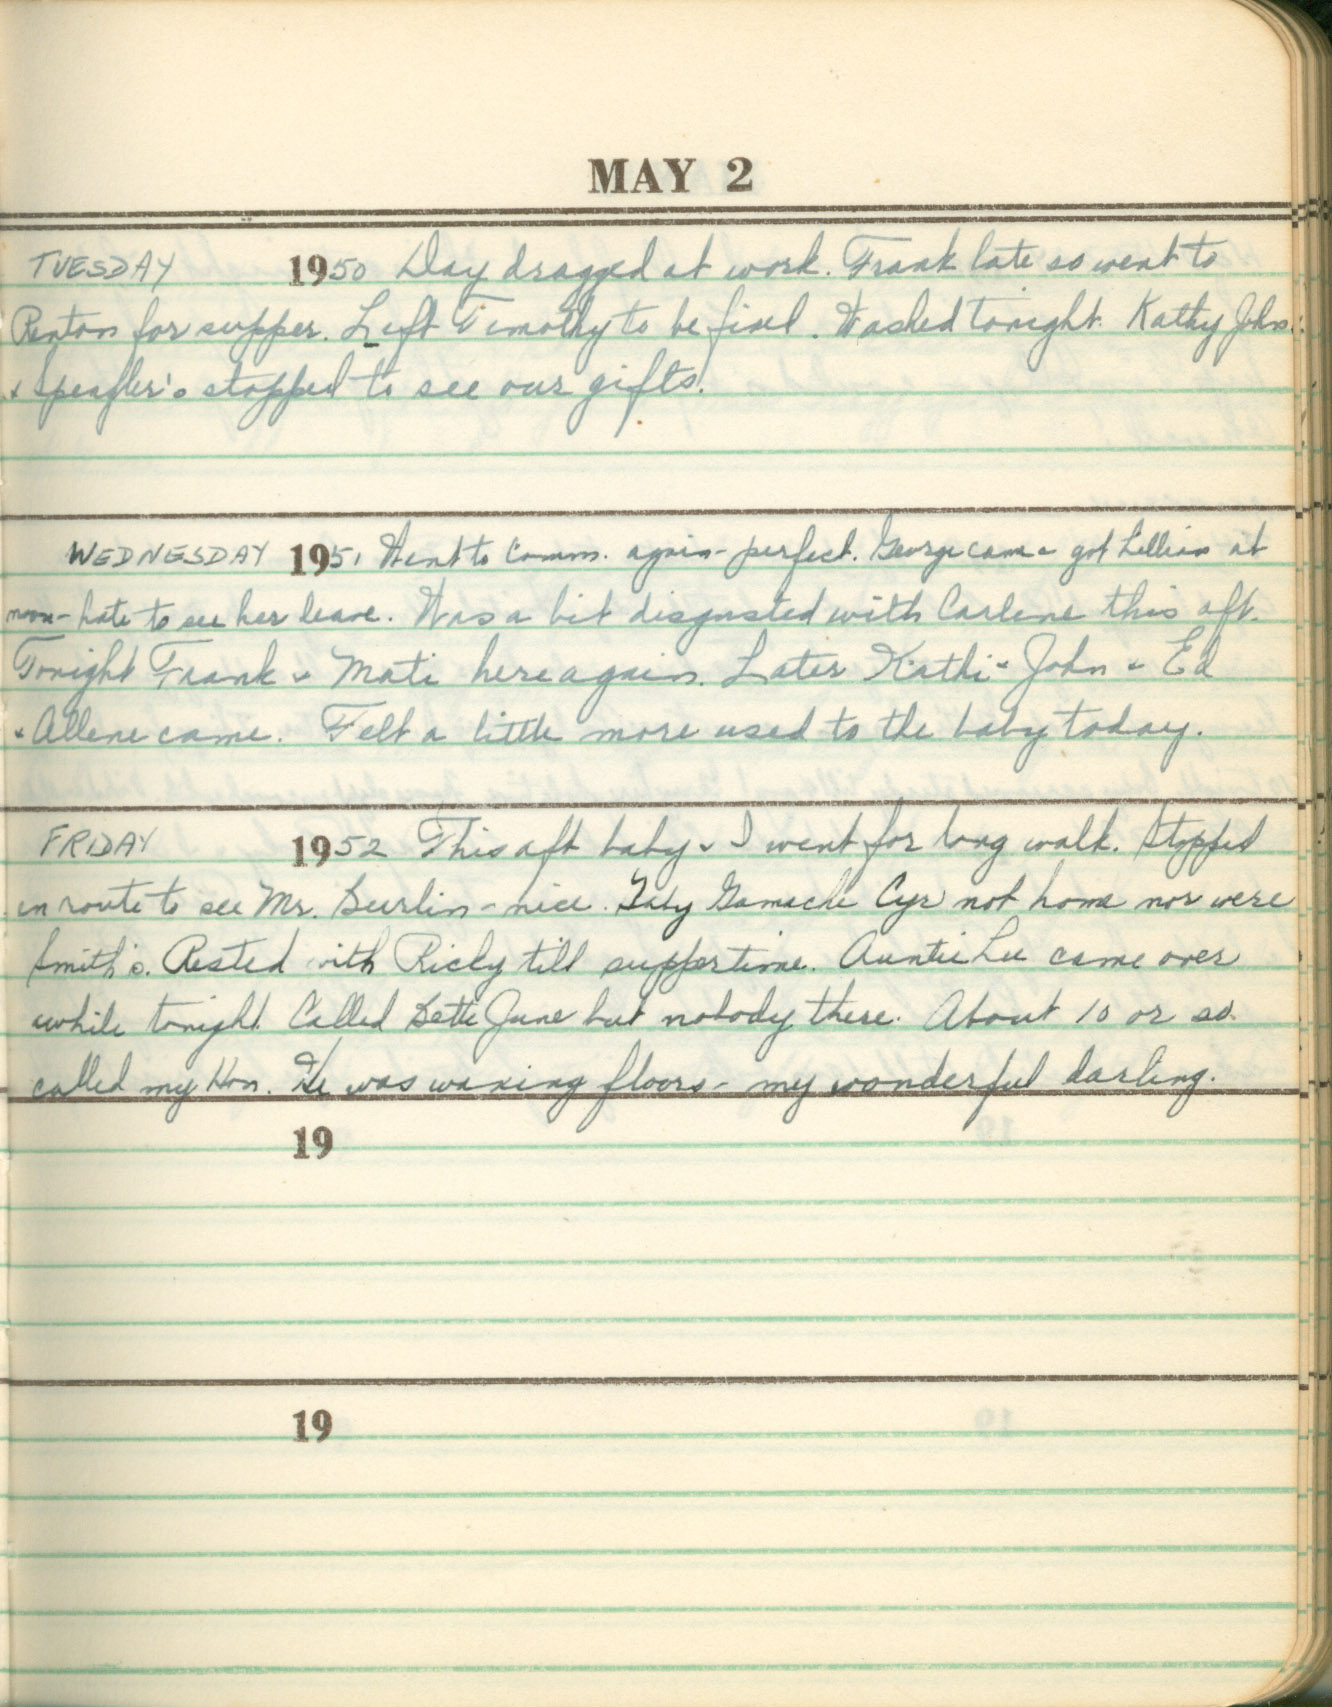 MAY 2
TUESDAY 1950 Day dragged at work. Frank late so went to
Renton for supper. Left Timothy to be fixed. Washed tonight. Kathy John
& stopped to see our gifts.
WEDNESDAY 1951 Went to Comm. again - perfect. George came & got Lillian at
noon - hate to see her leave. Was a bit disgusted with Carlene this aft.
Tonight Frank & Mati here again. Later Kathi & John & Ed
& Allene came. Felt a little more used to the baby today.
FRIDAY 1952 This aft baby & I went for long walk. Stopped
in route to see Mr. - nice. Gamache Cyr not home nor were
Smith's. Rested with Ricky till suppertime. Auntie Lu came over
while tonight. Called Bette June but nobody there. About 10 or so
called my Hon. He was waxing floors - my wonderful darling.
19
19